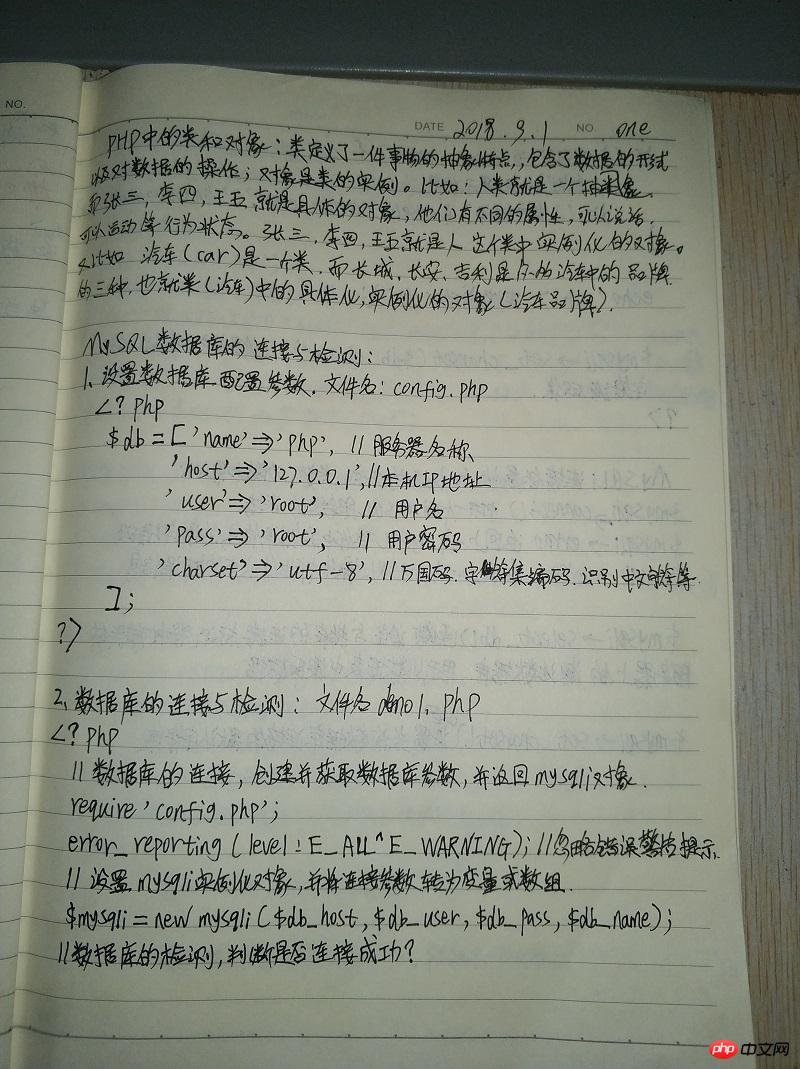 NO.
DATE 2018.9.1 NO. one
PHP中的类和对象：类定义了一件事物的抽象特点，包含了数据的形式
以及对数据的操作；对象是类的实例。比如：人类就是一个抽象,
而张三，李四，王五就是具体的对象，他们有不同的属性，可以说话，
可以运动等行为状态。张三，李四，王五就是人这个类中实例化的对象。
又比如 汽车(car)是一个类，而长城、长安、吉利是 的汽车中的品牌
的三种，也就类(汽车)中的具体化，实例化的对象(汽车品牌).
MySQL数据库的连接与检测：
1. 设置数据库配置参数. 文件名: config.php
<?php
$db = ['name'=>'php', //服务器名称
'host'=>'127.0.0.1', //本机IP地址
'user'=>'root', // 用户名
'pass'=>'root', // 用户密码
'charset'=>'utf-8', //万国码. 字符集编码. 识别中文字符等
];
?>
2. 数据库的连接与检测： 文件名 demo1.php
<?php
//数据库的连接，创建并获取数据库参数，并返回mysqli对象.
require 'config.php';
error_reporting (level: E_ALL^E_WARNING); //忽略错误警告提示.
// 设置 mysqli实例化对象，并将连接参数转为变量或数组.
$mysqli = new mysqli ($db_host, $db_user, $db_pass, $db_name);
//数据库的检测，判断是否连接成功?
php 中文网